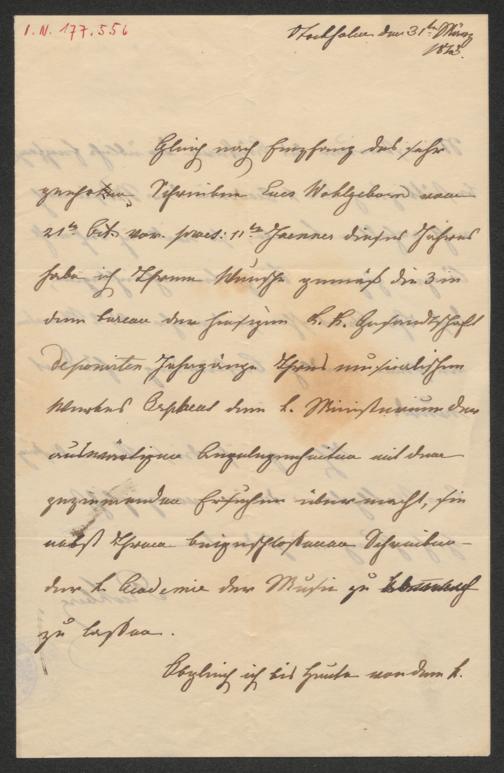 I.N. 177.556
Stockholm den 31ten März
18
Gleich nach Empfang des sehr
geehrten Schreibens Euer Wohlgeboren vom
21ten Okt. vor. praes: 11ten Jaenner dieses Jahres
habe ich Ihrem Wunsche gemäß die 3 in
dem bureau der hiesigen k. k. Gesandtschaft
deponirten Jahrgänge Ihres musicalischen
Werkes Orpheus dem k. Ministerium der
auswärtigen Angelegenheiten mit dem
geziemenden Ersuchen übermacht, sie
nebst Ihrem beigeschloßenen Schreiben
der k Academie der Music zu
zu laßen.
Obgleich ich bis heute von dem k.